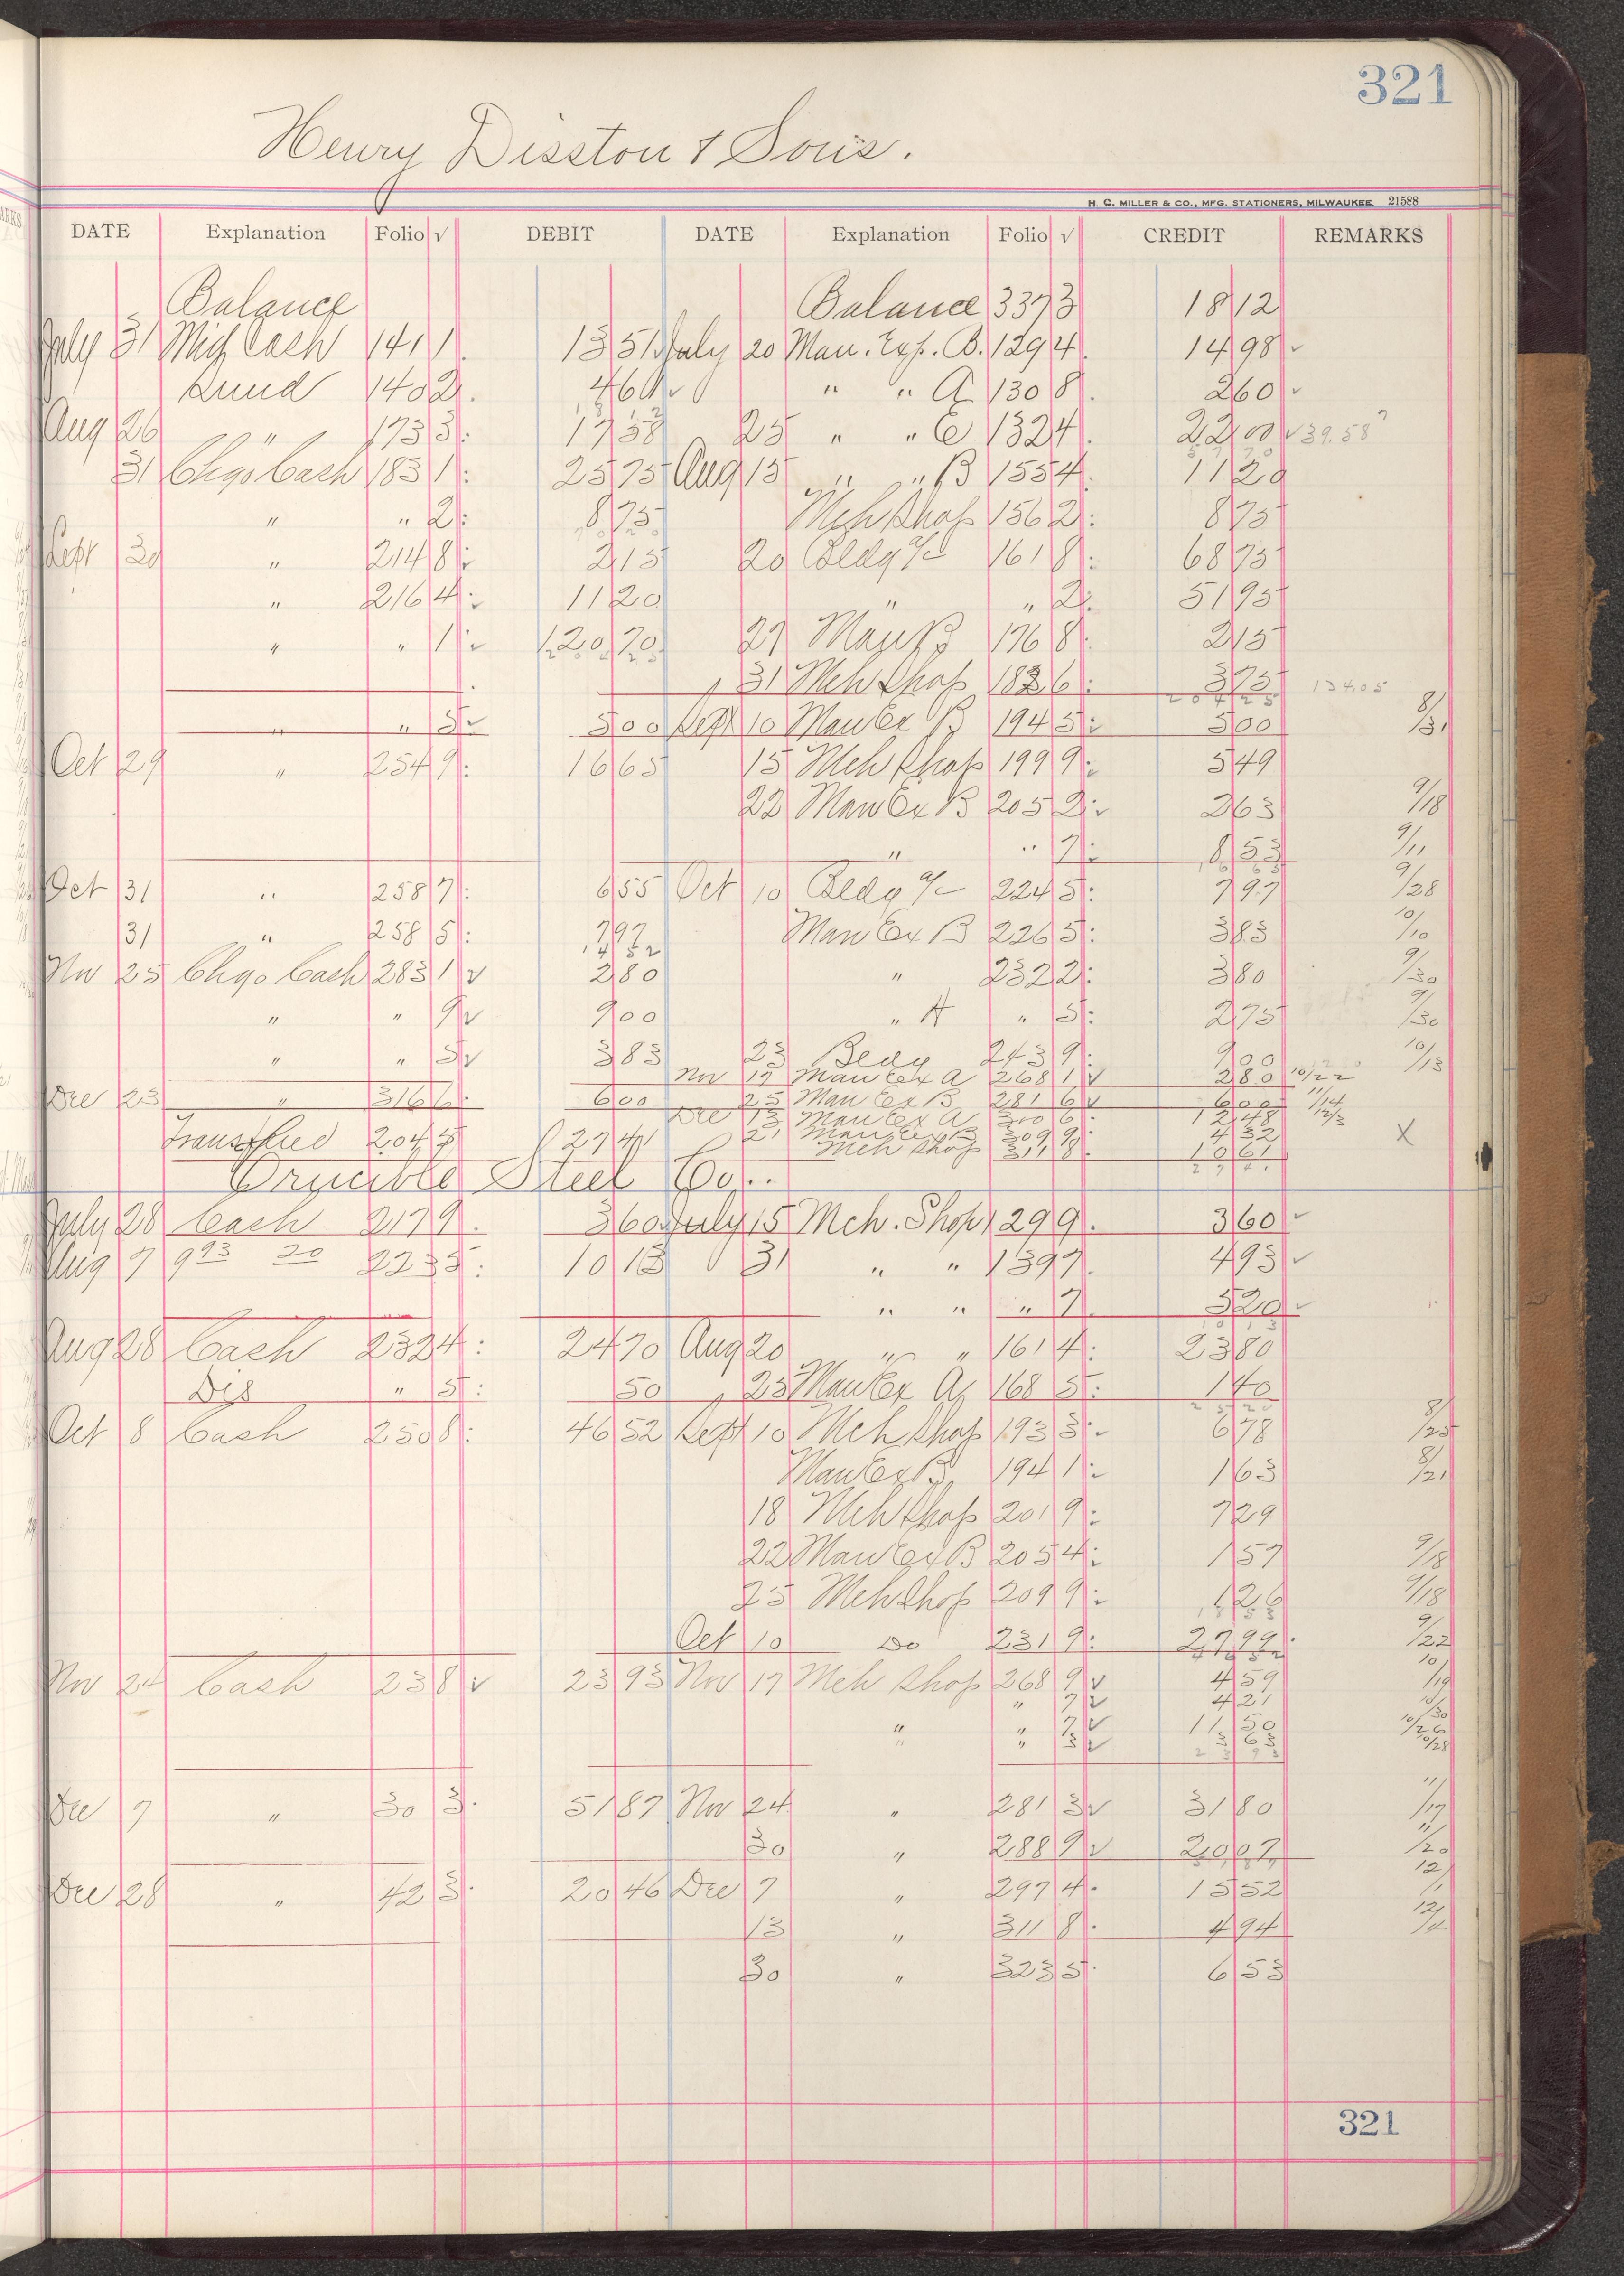 321
Henry Disston & Sons.
H. C. MILLER & CO., MFG. STATIONERS, MILWAUKEE 21588
DATE Explanation Folio √ DEBIT DATE Explanation Folio √ CREDIT REMARKS
Balance Balance 3373 18 12
July 31 Cash 1411 13 51 July 20 Man. Exp. B. 1294 14 98 √
1402 4 60 √ " " A 1308 2 60 √
Aug 26 " 1733 17 58 25 " " E 1324 22 00 √ 39.58 ?
31 Chgo Cash 1831 25 75 Aug 15 " " B 1554 11 20
" " 2 8 75 Mch Shop 1562 8 75
Sept 30 " 2148 2 15 20 Bldg a/c 1618 68 75
" 2164 √ 11 20 " " 2 51 95
" " 1 √ 120 70 27 Man B 1768 2 15
31 Mch Shop 1826 3 75 134.05
" " 5 √ 5 00 Sept 10 Man Ex B 1945 5 00 8/31
Oct 29 " 2549 16 65 15 Mch Shop 1999 5 49
22 Man Ex B 2052 √ 2 63 9/18
" " 7 8 53 9/11
Oct 31 " 2587 6 55 Oct 10 Bldg a/c 2245 7 97 9/28
31 " 2585 7 97 Man Ex B 2265 3 83 10/10
14 52
Nov 25 Chgo Cash 2831 √ 2 80 " 2322 3 80 9/30
" " 9 √ 9 00 " A " 5 2 75 9/30
" " 5 √ 3 83 23 Bldg 2439 9 00 10/13
Nov 17 Man Ex A 2681 √ 2 80 10/22
Dec 23 " 3166 6 00 25 Man Ex B 2816 √ 6 00 11/14
Dec 13 Man Ex A 3006 12 48 12/3
Transfered 27 41 21 Man Ex B 3099 4 32 X
Mch Shop 3118 10 61
Crucible Steel Co..
July 28 Cash 2179 3 60 July 15 Mch. Shop 1299 3 60 √
Aug 7 9 93 20 2233 10 13 31 " " 1397 4 93 √
" " " 7 5 20 √
10 13
Aug 28 Cash 2324 24 70 Aug 20 " " 1614 23 80
Dis " 5 50 25 Man Ex A 1685 1 40
25 20
Oct 8 Cash 2508 46 52 Sept 10 Mch Shop 1933 √ 6 78 8/25
Man Ex B 1941 1 63 8/21
18 Mch Shop 2019 7 29
22 Man Ex B 2054 1 57 9/18
25 Mch Shop 2099 1 26 9/18
Oct 10 Do 2319 27 99 9/22
46 52
Nov 24 Cash 238 √ 23 93 Nov 17 Mch Shop 2689 √ 4 59 10/19
" 7 √ 4 21 10/30
" " 7 √ 11 50 10/26
" " 3 √ 3 63 10/28
23 93
Dec 7 " 30 3 51 87 Nov 24 " 2813 √ 31 80 11/17
30 " 2889 √ 20 07 11/20
Dec 28 " 42 3 20 46 Dec 7 " 2974 15 52 12/1
13 " 3118 4 94 12/2
30 " 3235 6 53
321